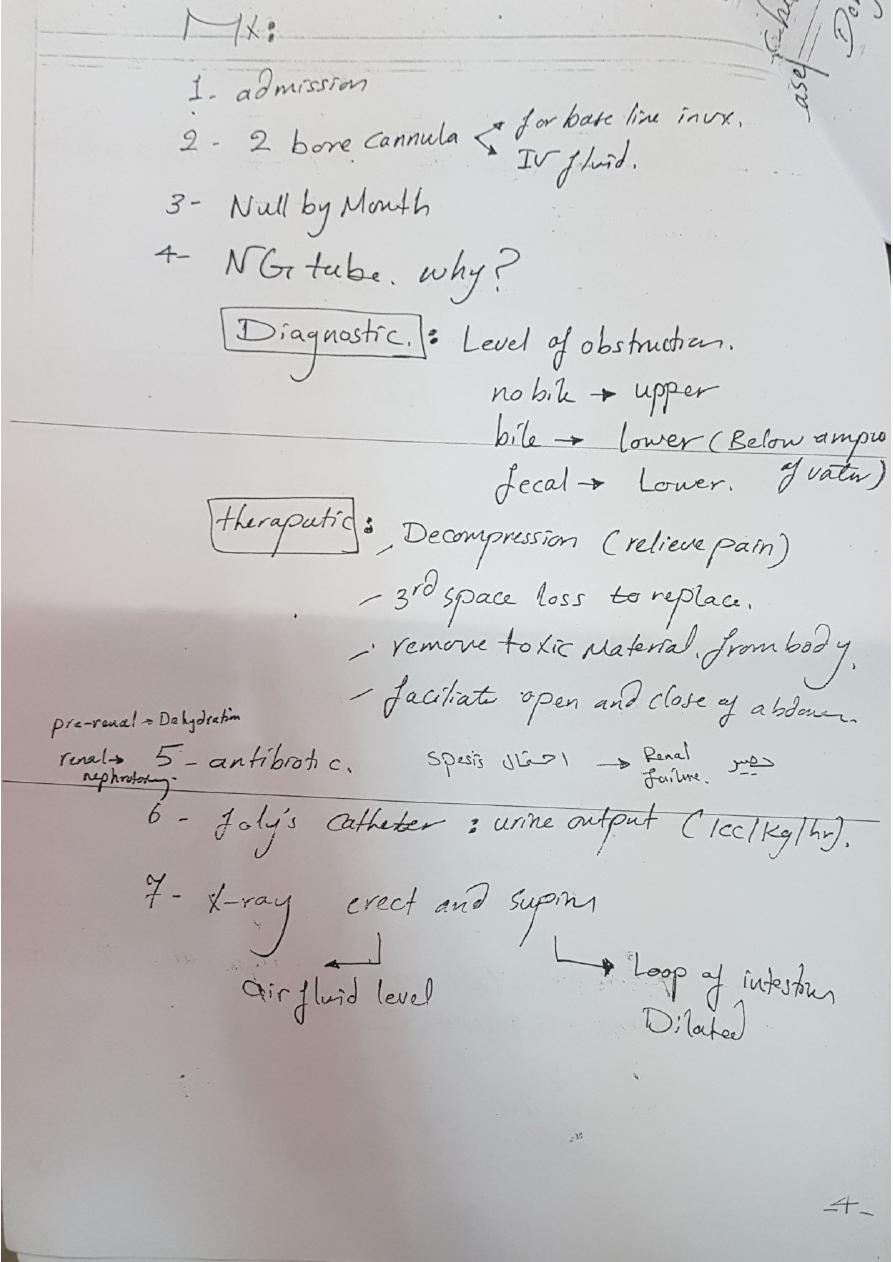 Mx:
1- admission
2- 2 bore cannula for base line invx.
IV fluid.
3- Null by Mouth
4- NG tube. why?
Diagnostic. : Level of obstruction.
no bile → upper
bile → lower (Below ampu
of vater)
fecal → Lower.
theraputic : - Decompression (relieve pain)
- 3rd space loss to replace.
- remove toxic Material from body.
- faciliate open and close of abdomen.
pre-renal → Dehydration
renal →
5- antibiotic. Spesis احتمال → Renal
failure.
6- foly's Catheter : urine output (1cc/kg/hr).
7- X-ray erect and supine
air fluid level
Loop of intestine
Dilated
-4-